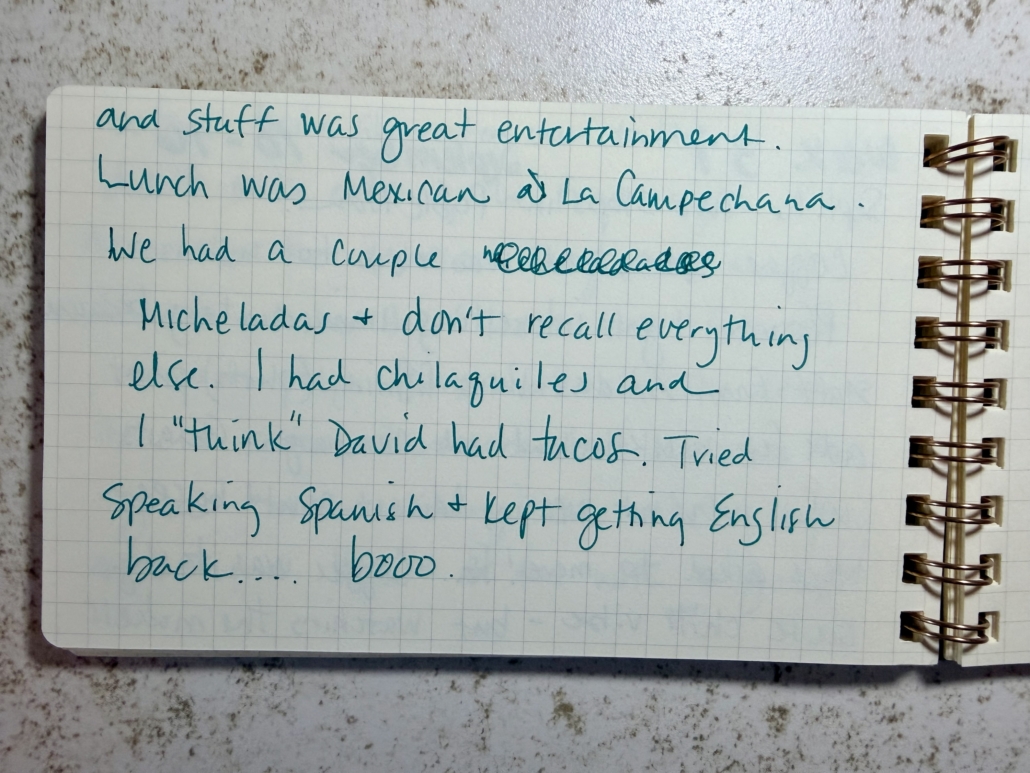 and stuff was great entertainment.
Lunch was Mexican @ La Campechana.
We had a couple
Micheladas + don't recall everything
else. I had chilaquiles and
I "think" David had tacos. Tried
Speaking Spanish + kept getting English
back.... booo.